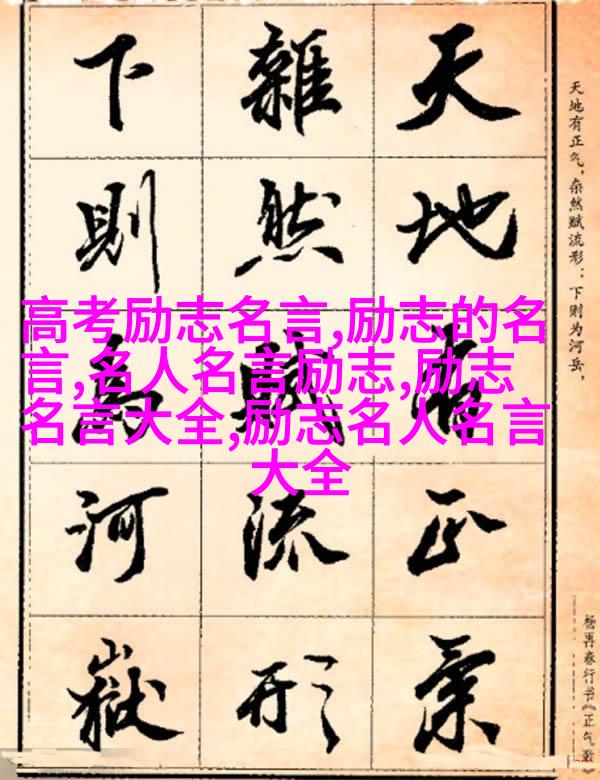 天地有正氣
雜然賦流形
下則為河嶽
天地有正气，杂然赋流形：下则为河岳，
杨再春行书《正气歌》
高考励志名言,励志的名
言,名人名言励志,励志
名言大全,励志名人名言
大全